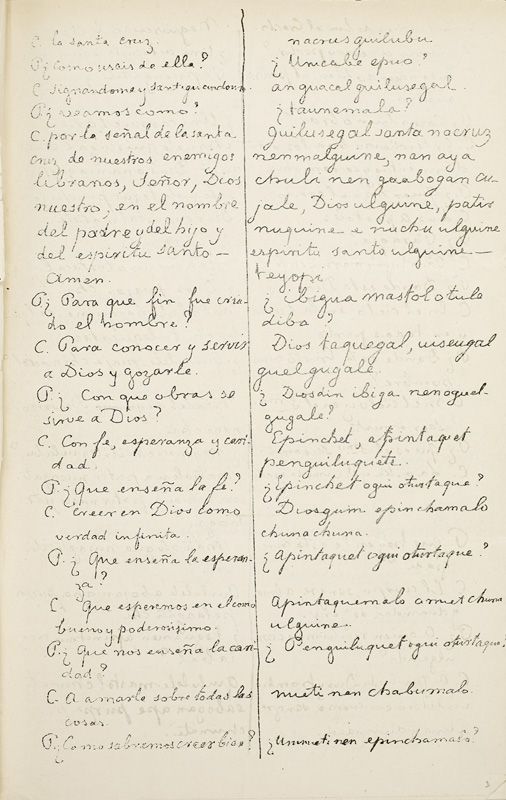 C. la santa cruz.
P. ¿Como usais de ella?
C. signandome y santiguandome.
P. ¿veamos como?
C. por la señal de la santa
cruz, de nuestros enemigos
libranos, Señor, Dios
nuestro, en el nombre
del padre y del hijo y
del espiritu santo —
Amen.
P. ¿Para que fin fue cria-
do el hombre?
C. Para conocer y servir
a Dios y gozarle.
P. ¿Con que obras se
sirve a Dios?
C. Con fe, esperanza y cari-
dad.
P. ¿Que enseña la fe?
C. creer en Dios como
verdad infinita.
P. ¿Que enseña la esperan-
za?
C. Que esperemos en el como
bueno y poderosisimo.
P. ¿Que nos enseña la cari-
dad?
C. A amarlo sobre todas las
cosas.
P. ¿Como sabremos creer bien?
nacrus quilubu
¿Unicabe epuo?
anguacal quilusegal.
¿taunemala?
Quilusegal santa nacruz
nenmalguine, nan aya
chuli nen gaabogan cu-
jale, Dios ulguine, patis
nuquine e nuchu ulguine
espiritu santo ulguine —
teyopi
¿ibigua mastol otule
diba?
Dios taquegal, uiseugal
guelgugale.
¿Diosdin ibiga nenoguel-
gugale?
Epinchet, apintaquet
penguiluquete.
¿Epinchet ogui oturtaque?
Diosgum epinchamalo
chunachuna.
¿Apintaquet ogui oturtaque?
Apintaquemalo amet chuna
ulguine.
¿Penguiluquet ogui oturtaque?
mueti nen chabumalo.
¿Ummeti nen epinchamalo?
3